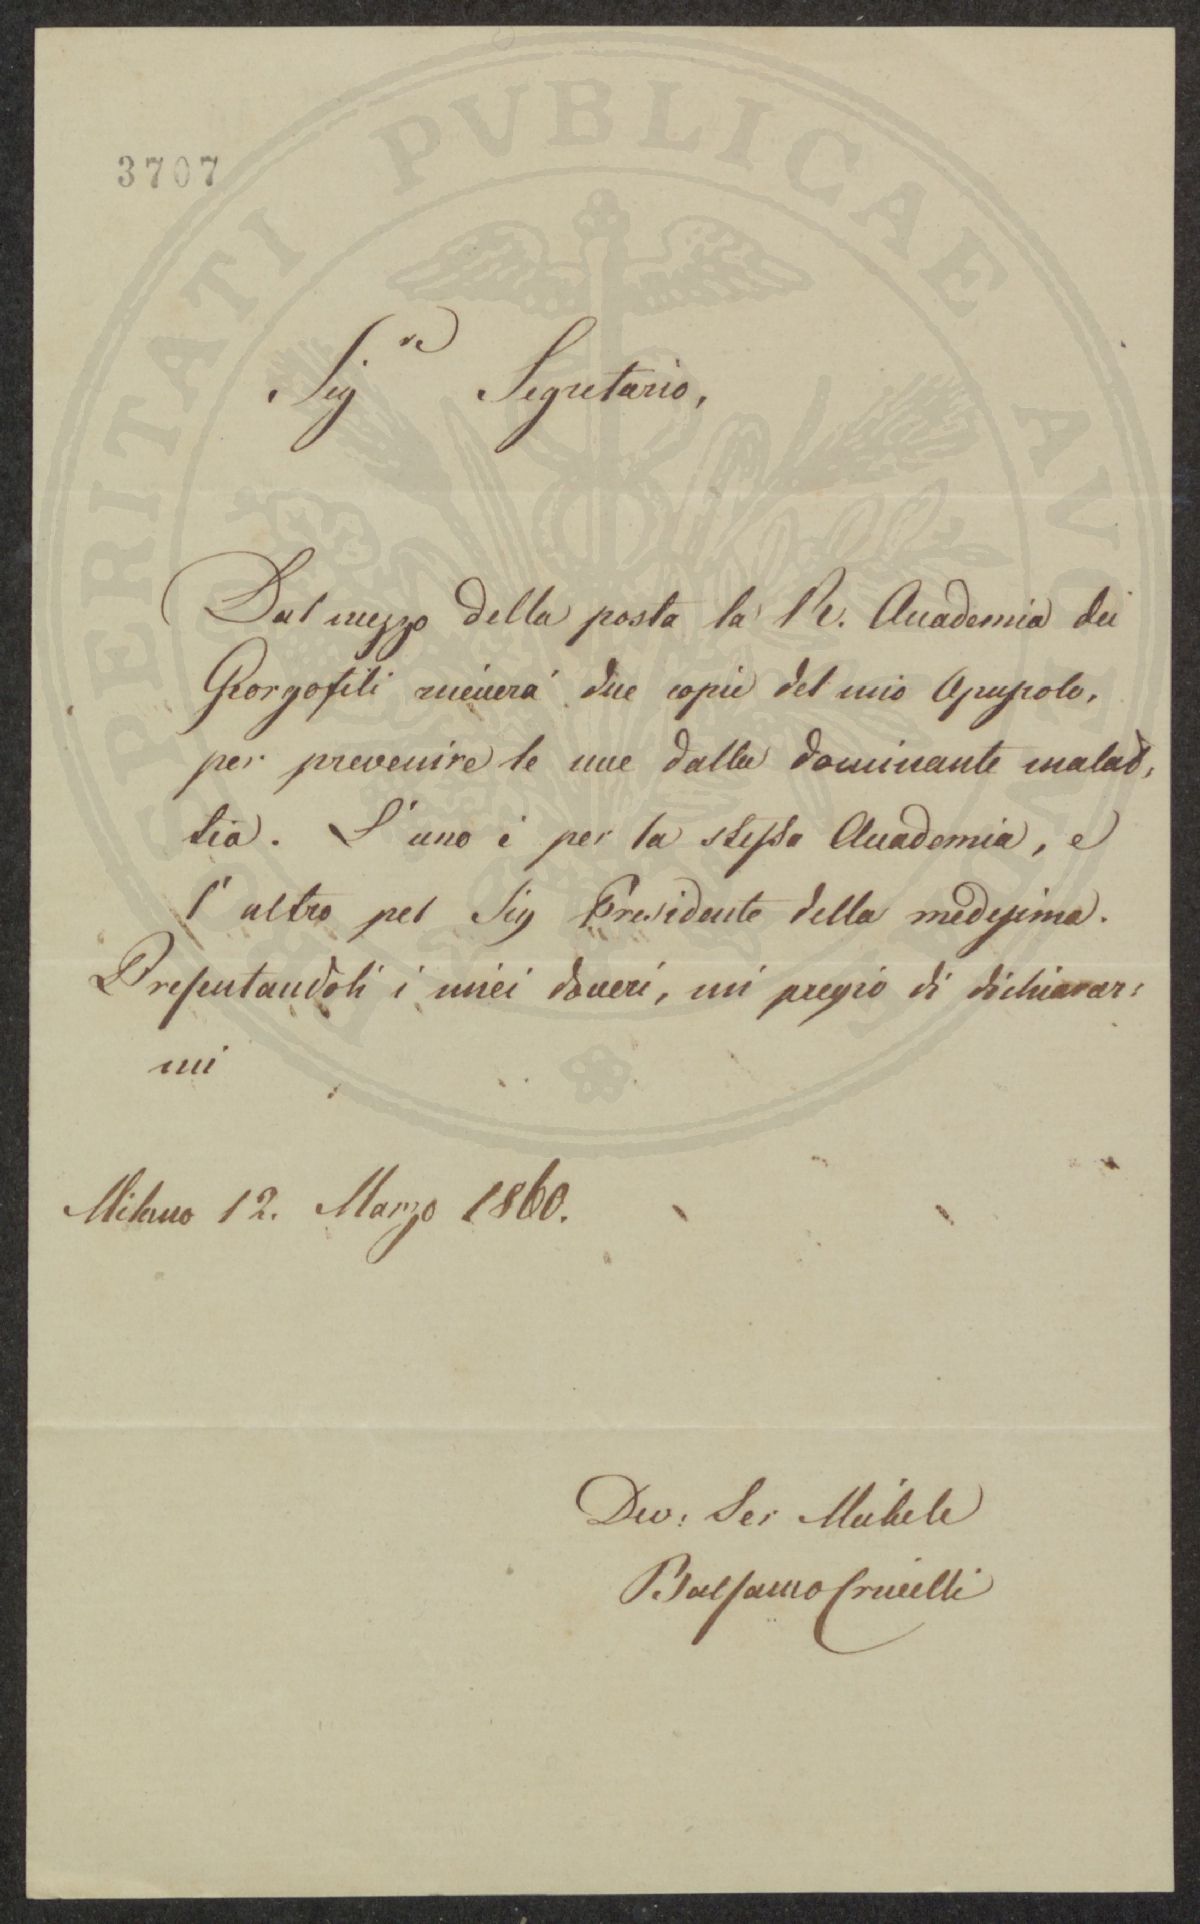 3707
PROSPERITATI PVBLICAE AVGENDAE
Sig.re Segretario,
Dal mezzo della posta la R. Accademia dei
Georgofili riceverà due copie del mio Opuscolo,
per prevenire le uve dalla dominante malat,
tia. L'uno è per la stessa Accademia, e
l'altro pel Sig Presidente della medesima.
Presentandoli i miei doveri, mi pregio di dichiarar:
mi
Milano 12. Marzo 1860.
Dev: Ser Michele
Balsamo Crivelli